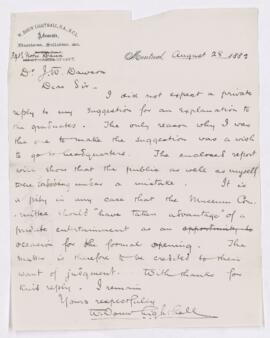 W. DOUW LIGHTHALL, M.A., B.C.L.
Advocate,
Montreal August 28 1882
Dr J. W. Dawson
Dear Sir.
I did not expect a private
reply to my suggestion for an explanation to
the graduates. The only reason why I was
the one to make the suggestion was a wish
to go to headquarters. The enclosed report
will show that the public as well as myself
were labouring under a mistake. It is
a pity in any case that the Museum Com-
mittee should "have taken advantage" of a
private entertainment as an opportunity to
occasion for the formal opening. The
matter is therefore to be credited to their
want of judgment. With thanks for
kind reply. I remain
Yours respectfully
W. Douw Lighthall